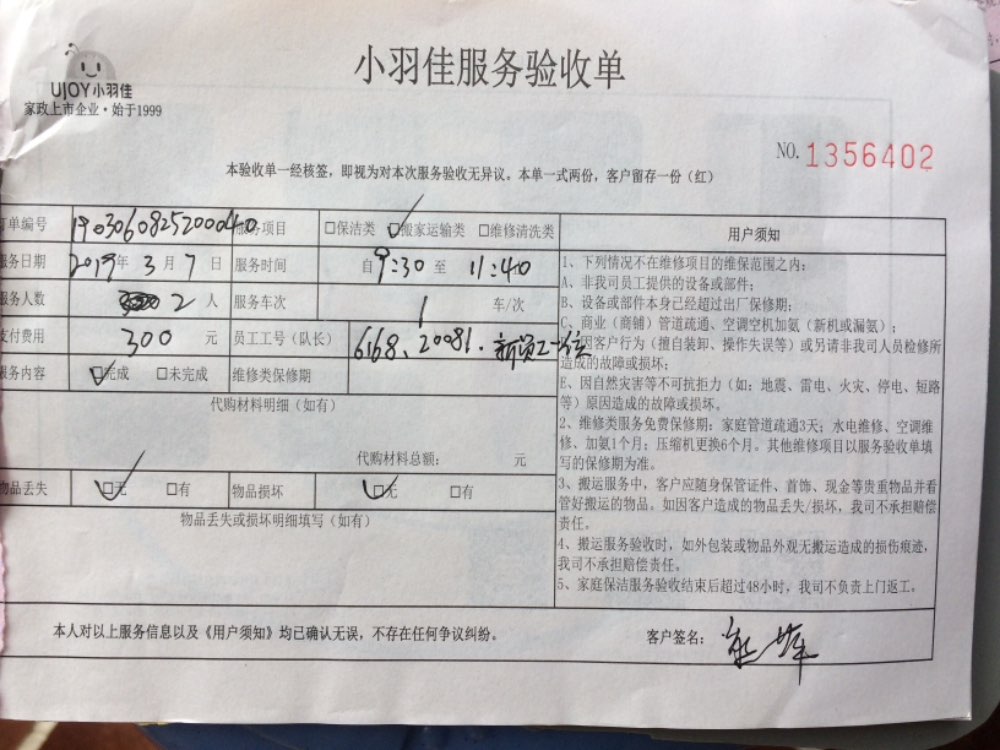 小羽佳服务验收单
UJOY小羽佳
家政上市企业·始于1999
NO. 1356402
本验收单一经核签，即视为对本次服务验收无异议。本单一式两份，客户留存一份（红）
单编号 1903060825200040 服务项目 □保洁类 □搬家运输类 □维修清洗类
服务日期 2019年 3月 7日 服务时间 自9:30至 11:40
服务人数 2人 服务车次 1 车/次
支付费用 300 元 员工工号（队长） 6168、20081.新员工一位
服务内容 □完成 □未完成 维修类保修期
代购材料明细（如有）
代购材料总额： 元
物品丢失 □无 □有 物品损坏 □无 □有
物品丢失或损坏明细填写（如有）
用户须知
1、下列情况不在维修项目的维保范围之内：
A、非我司员工提供的设备或部件；
B、设备或部件本身已经超过出厂保修期；
C、商业（商铺）管道疏通、空调空机加氨（新机或漏氨）；
因客户行为（擅自装卸、操作失误等）或另请非我司人员检修所
造成的故障或损坏；
E、因自然灾害等不可抗拒力（如：地震、雷电、火灾、停电、短路
等）原因造成的故障或损坏。
2、维修类服务免费保修期：家庭管道疏通3天；水电维修、空调维
修、加氨1个月；压缩机更换6个月。其他维修项目以服务验收单填
写的保修期为准。
3、搬运服务中，客户应随身保管证件、首饰、现金等贵重物品并看
管好搬运的物品。如因客户造成的物品丢失/损坏，我司不承担赔偿
责任。
4、搬运服务验收时，如外包装或物品外观无搬运造成的损伤痕迹，
我司不承担赔偿责任。
5、家庭保洁服务验收结束后超过48小时，我司不负责上门返工。
本人对以上服务信息以及《用户须知》均已确认无误，不存在任何争议纠纷。
客户签名：